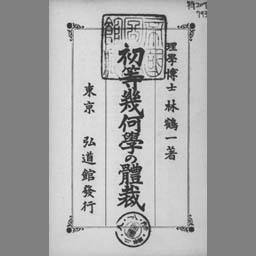 理學博士 林鶴一著
初等幾何學の體裁
東京 弘道館發行